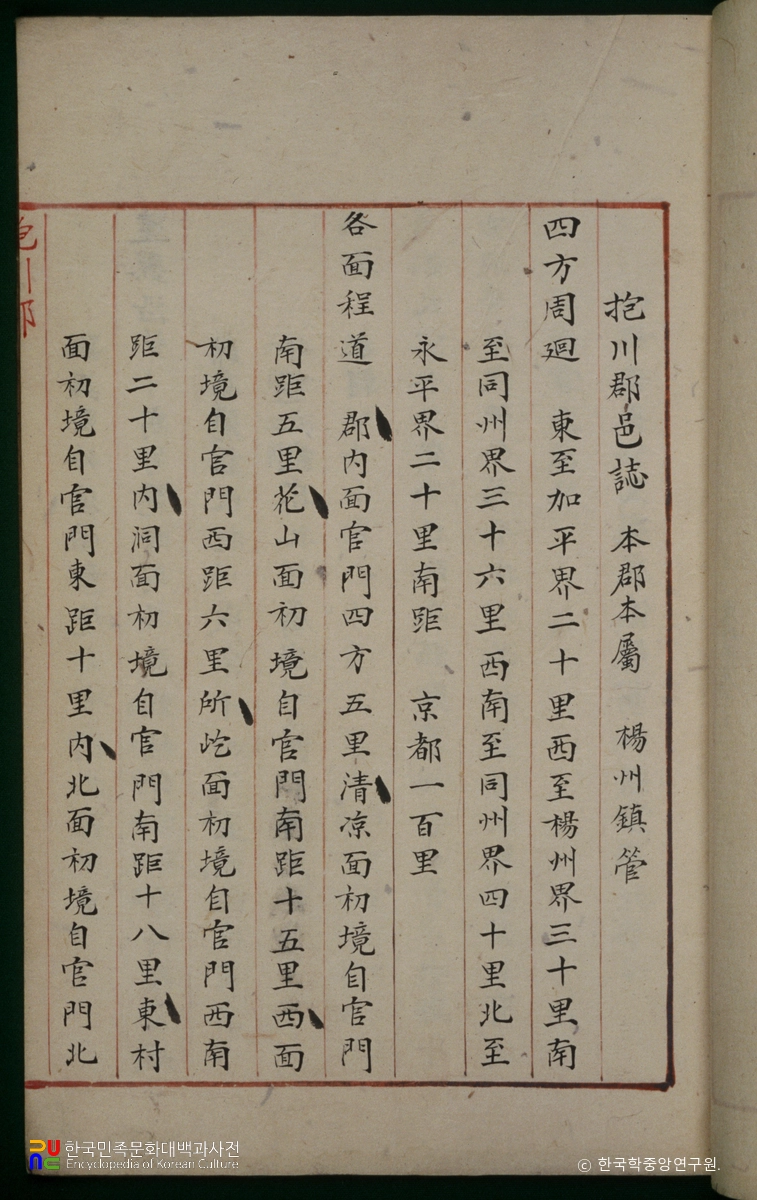 抱川郡邑誌 本郡本屬 楊州鎮管
四方周廻 東至加平界二十里西至楊州界三十里南
至同州界三十六里西南至同州界四十里北至
永平界二十里南距 京都一百里
各面程道 郡內面官門四方五里清凉面初境自官門
南距五里花山面初境自官門南距十五里西面
初境自官門西距六里所屹面初境自官門西南
距二十里內洞面初境自官門南距十八里東村
面初境自官門東距十里內北面初境自官門北
한국민족문화대백과사전
Encyclopedia of Korean Culture
© 한국학중앙연구원.